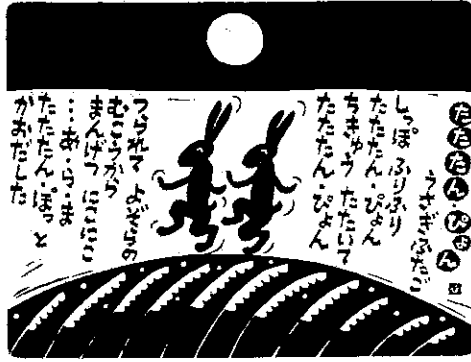 たたたん・ぴょん
うさぎふたご
しっぽ ふりふり
たたたん・ぴょん
ちきゅう たたいて
たたたん・ぴょん
つられて よぞらの
むこうから
まんげつ にこにこ
…あ・ら・ま
たたたん・ぽっ と
かおだした